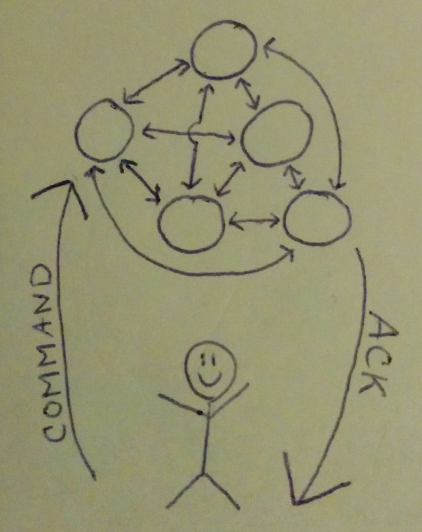 COMMAND
ACK